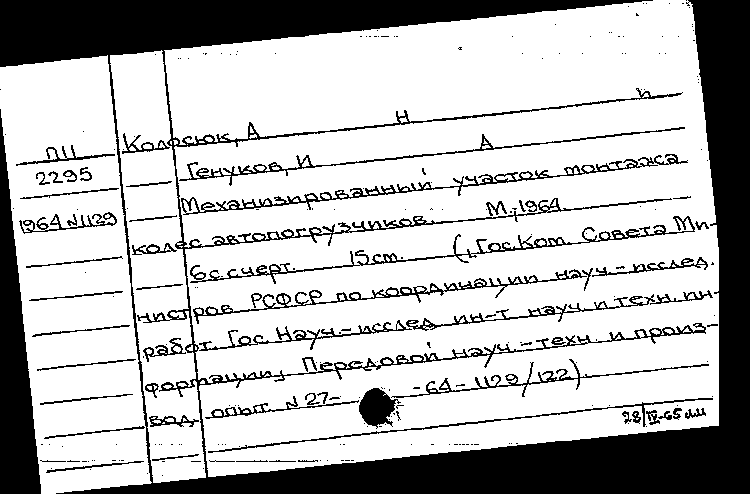 П11 Колосюк, А Н и
2295 Генуков, И А
Механизированный участок монтажа
1964 №1129 колес автопогрузчиков. М., 1964.
6 с. с черт. 15 см. (, Гос. Ком. Совета Ми-
нистров РСФСР по координации науч.-исслед.
работ. Гос. Науч.-исслед. ин-т науч. и техн. ин-
формации, Передовой науч.-техн. и произ-
вод. опыт. № 27- -64-1129/122).
28/IV-65